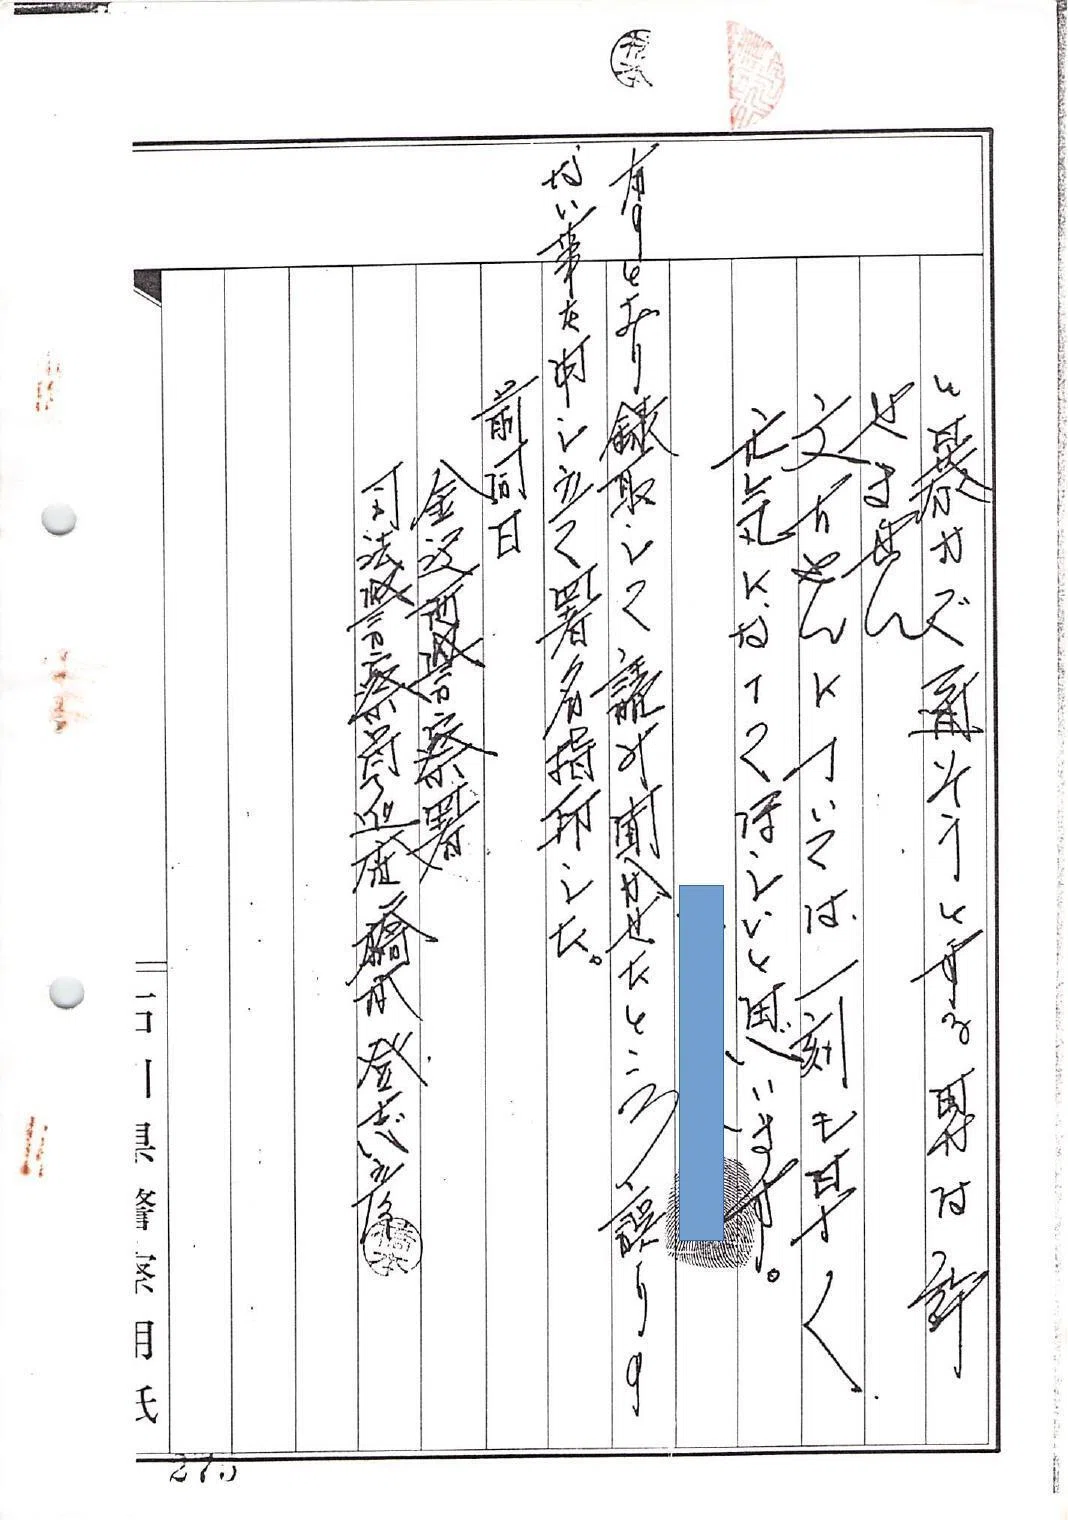 と暴かず通そうとする男は許
せません
文ちゃんについては一刻も早く
元気になってほしいと思います。
右のとおり録取して読み聞かせたところ誤りの
ない事を申し立て署名指印した。
前同日
金沢西警察署
司法警察員
橋本
石川県警察用紙
273